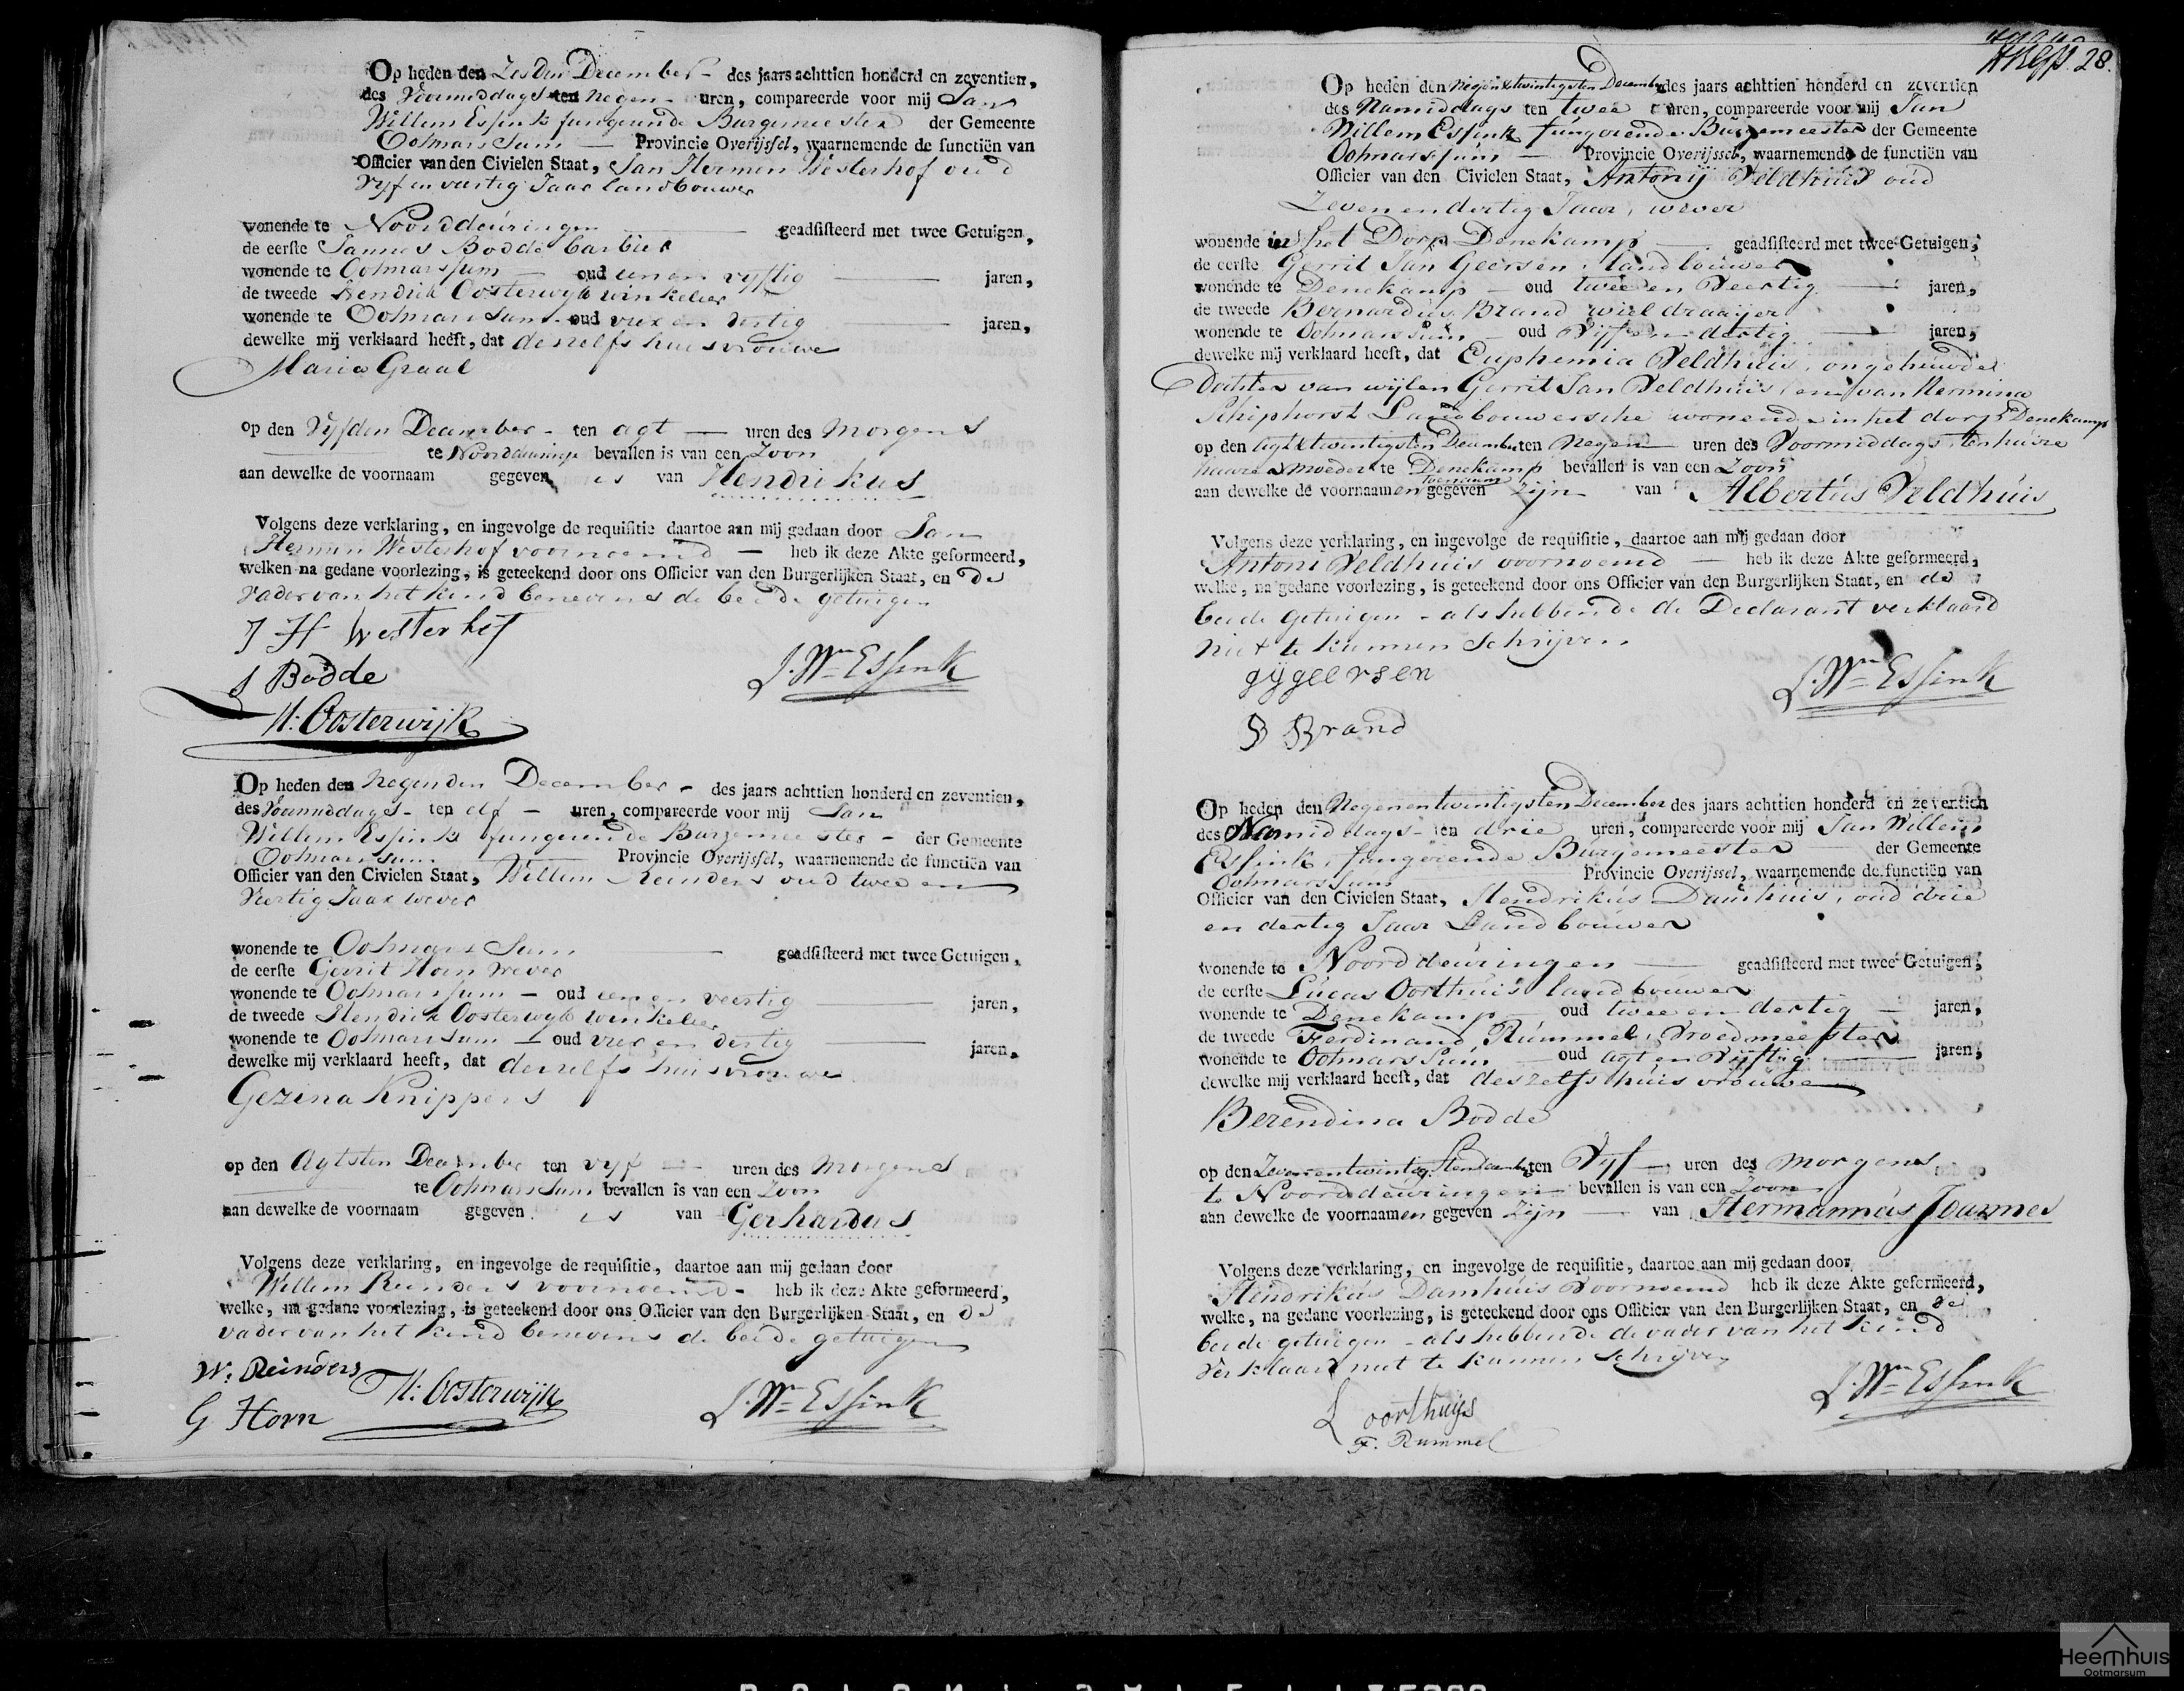 Op heden den Zesden December - des jaars achttien honderd en zeventien,
des Voormiddags ten negen - uren, compareerde voor mij Jan
Willem Essink fungerende Burgemeester der Gemeente
Ootmarssum — Provincie Overijssel, waarnemende de functiën van
Officier van den Civielen Staat, Jan Hermen Westerhof oud
Vyf en veertig Jaar landbouwer
wonende te Noorddeuringen — geadsisteerd met twee Getuigen,
de eerste Jannes Bodde barbier
wonende te Ootmarssum — oud een en vyftig — jaren,
de tweede Hendrik Oosterwyk winkelier
wonende te Ootmarssum - oud vier en dertig — jaren,
dewelke mij verklaard heeft, dat deszelfs huisvrouwe
Maria Graal
op den Vyfden December - ten agt — uren des morgens
— te Noorddeuringe bevallen is van een Zoon
aan dewelke de voornaam gegeven is van Hendrikus
Volgens deze verklaring, en ingevolge de requisitie daartoe aan mij gedaan door Jan
Hermen Westerhof voornoemd — heb ik deze Akte geformeerd,
welken na gedane voorlezing, is geteekend door ons Officier van den Burgerlijken Staat, en de
Vader van het kind benevens de beide getuigen
J H Westerhof
J Bodde
J. Wm Essink
H: Oosterwijk
Op heden den negenden December - des jaars achttien honderd en zeventien,
des Voormiddags - ten elf — uren, compareerde voor mij Jan
Willem Essink fungerende Burgemeester - der Gemeente
Ootmarssum — Provincie Overijssel, waarnemende de functiën van
Officier van den Civielen Staat, Willem Reinders oud twee en
Veertig Jaar wever
wonende te Ootmarssum — geadsisteerd met twee Getuigen,
de eerste Gerrit Horn wever
wonende te Ootmarssum — oud een en veertig — jaren,
de tweede Hendrik Oosterwyk winkelier
wonende te Ootmarssum — oud vier en dertig — jaren,
dewelke mij verklaard heeft, dat deszelfs huisvrouwe
Gezina Knippers
op den Agtsten December ten vyf — uren des morgens
— te Ootmarssum bevallen is van een Zoon
aan dewelke de voornaam gegeven is van Gerhardus
Volgens deze verklaring, en ingevolge de requisitie, daartoe aan mij gedaan door
Willem Reinders voornoemd - heb ik deze Akte geformeerd,
welke, na gedane voorlezing, is geteekend door ons Officier van den Burgerlijken Staat, en de
vader van het kind benevens de beide getuigen
W: Reinders
H: Oosterwijk
G Horn
J. Wm Essink
28.
Op heden den Negen & twintigsten December des jaars achttien honderd en zeventien
des Namiddags ten twee uren, compareerde voor mij Jan
Willem Essink fungerende Burgemeester der Gemeente
Ootmarssum — Provincie Overijssel, waarnemende de functiën van
Officier van den Civielen Staat, Antonij Veldhuis oud
Zeven en dertig Jaar, wever
wonende in het Dorp Denekamp — geadsisteerd met twee Getuigen,
de eerste Gerrit Jan Geersen, landbouwer
wonende te Denekamp — oud twee en Veertig — jaren,
de tweede Bernardus Brand wieldraaijer
wonende te Ootmarssum — oud Vyf en dertig — jaren,
dewelke mij verklaard heeft, dat Euphemia Veldhuis, ongehuwde
Dochter van wijlen Gerrit Jan Veldhuis, en van Hermina
Schiphorst Landbouwersche wonende in het dorp Denekamp
op den agt & twintigsten December ten Negen — uren des Voormiddags, ten huize
haare moeder te Denekamp bevallen is van een Zoon
toenaam
aan dewelke de voornaamen gegeven zijn — van Albertus Veldhuis
Volgens deze verklaring, en ingevolge de requisitie, daartoe aan mij gedaan door
Antoni Veldhuis voornoemd — heb ik deze Akte geformeerd,
welke, na gedane voorlezing, is geteekend door ons Officier van den Burgerlijken Staat, en de
beide getuigen - als hebbende de Declarant verklaard
niet te kunnen Schrijven.
gijgeersen
J. Wm Essink
B Brand
Op heden den Negenentwintigsten December des jaars achttien honderd en zeventien
des Namiddags - ten drie uren, compareerde voor mij Jan Willem
Essink, fungerende Burgemeester — der Gemeente
Ootmarssum Provincie Overijssel, waarnemende de functiën van
Officier van den Civielen Staat, Hendrikus Damhuis, oud drie
en dertig Jaar Landbouwer
wonende te Noorddeuringen — geadsisteerd met twee Getuigen,
de eerste Lucas Oorthuis landbouwer
wonende te Denekamp — oud twee en dertig — jaren,
de tweede Ferdinand Rummel, Vroedmeester
wonende te Ootmarssum — oud agt en Vijftig — jaren,
dewelke mij verklaard heeft, dat deszelfs huisvrouwe
Berendina Bodde
op den Zevenentwintigsten December ten Vyf — uren des morgens
te Noorddeuringen — bevallen is van een Zoon
aan dewelke de voornaamen gegeven zijn — van Hermannus Joannes
Volgens deze verklaring, en ingevolge de requisitie, daartoe aan mij gedaan door
Hendrikus Damhuis Voornoemd heb ik deze Akte geformeerd,
welke, na gedane voorlezing, is geteekend door ons Officier van den Burgerlijken Staat, en de
beide getuigen - als hebbende de vader van het kind
verklaard niet te kunnen schrijven
J. Wm Essink
L oorthuijs
F. Rummel
Heemhuis
Ootmarsum